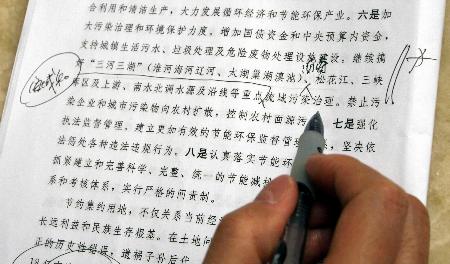 合利用和清洁生产，大力发展循环经济和节能环保产业。六是加
大污染治理和环境保护力度。增加国债资金和中央预算内资金，
支持城镇生活污水、垃圾处理及危险废物处理设施建设。继续搞
好“三河三湖”（淮河海河辽河、太湖巢湖滇池）、松花江、三峡
库区及上游、南水北调水源及沿线等重点流域污染治理。禁止污
染企业和城市污染物向农村扩散，控制农村面源污 七是强化
执法监督管理。建立更加有效的节能环保监督管理 坚决依
法惩处各种违法违规行为。八是认真落实节能环
抓紧建立和完善科学、完整、统一的节能减排
系和考核体系，实行严格的问责制。
节约集约用地，不仅关系当前经
长远利益和民族生存根基。在土地问
正的历史性错误，遗祸子孙后代